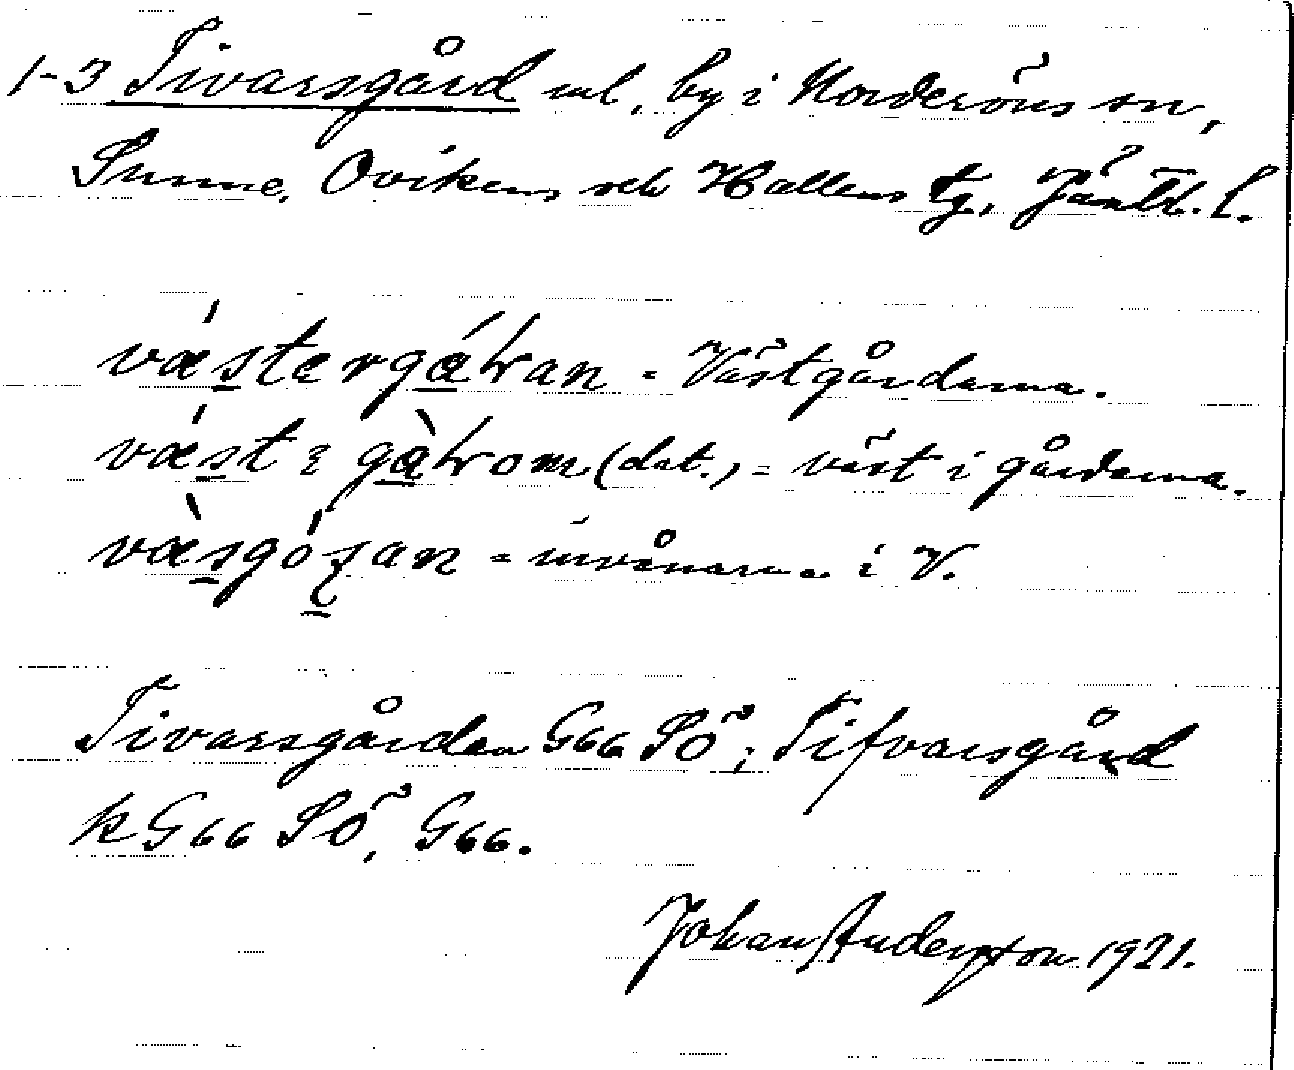 1-3 Tivarsgård ml, by i Norderöns sn,
Sunne, Ovikens och Hallens tg, Jämtl. l.
vǽstergá̱tran = Västgårdarna.
vǽst i gà̱trom (dat.) = väst i gårdarna.
væ̀sgó an = invånarna i V.
Tivarsgården G66 SÖ; Tifvarsgård
k G66 SÖ, G66.
Johan Anderzon 1921.